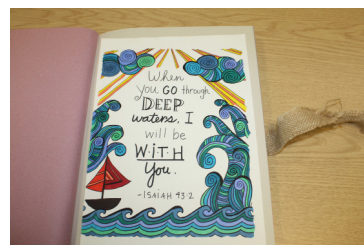 When
you GO through
DEEP
waters, I
will be
WITH
You.
-ISAIAH 43:2